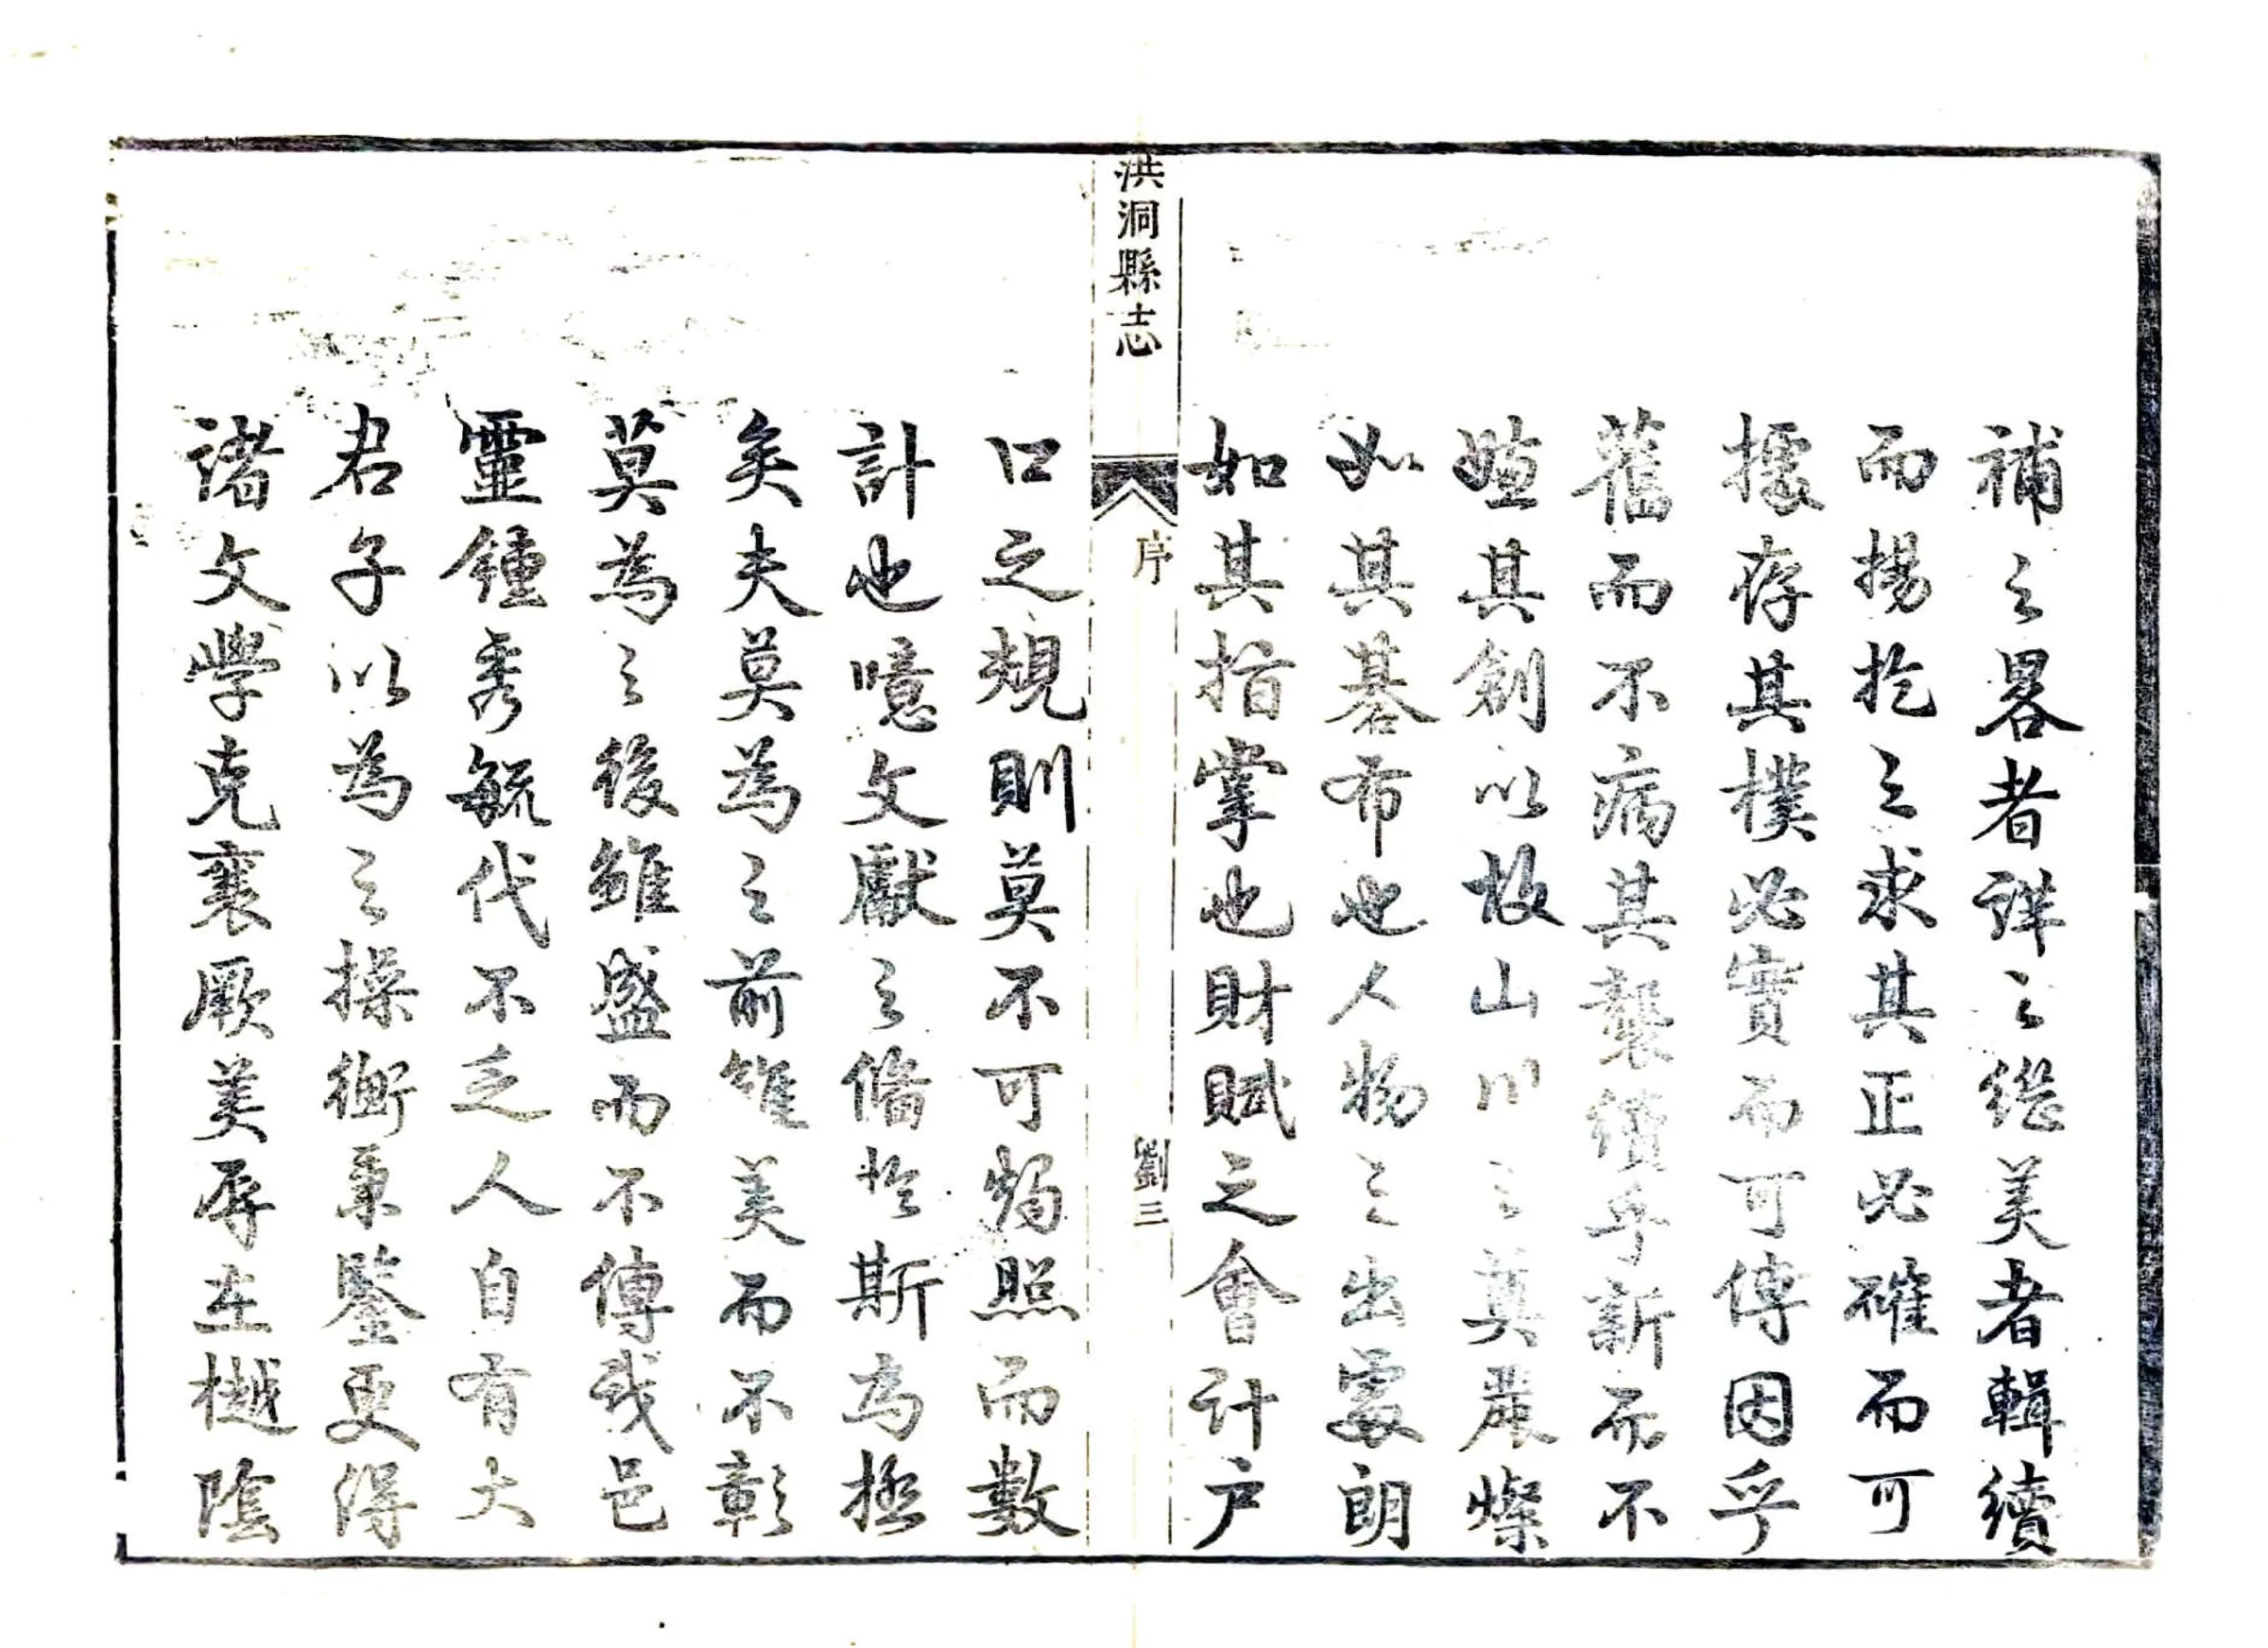 補之畧者詳之繼美者輯續
而揚扢之求其正必確而可
據存其樸必實而可傳因乎
舊而不病其襲續乎新而不
嫌其創以故山川之奠麗燦
如其棊布也人物之出處朗
如其指掌也財賦之會計户
洪洞縣志
序
劉三
口之規則莫不可燭照而數
計也噫文獻之備於斯為極
矣夫莫為之前雖美而不彰
莫為之後雖盛而不傳我邑
靈鍾秀毓代不乏人自有大
君子以為之操衡秉鑒更得
諸文學克襄厥美辱在樾陰